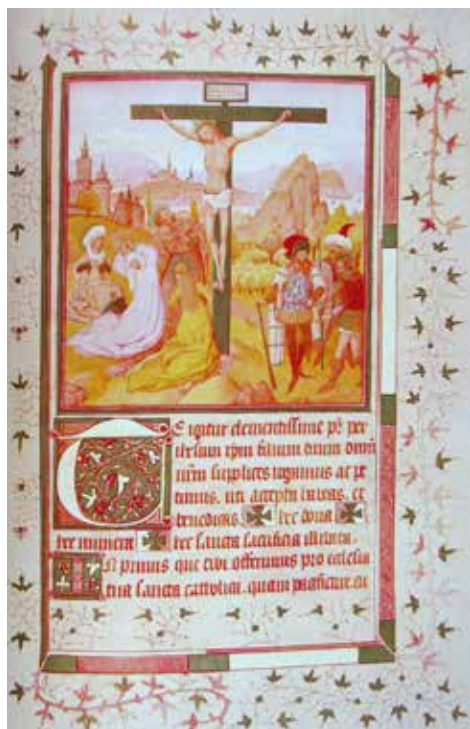 TE igitur clementissime pr̄ per
ihesum xpm filium tuum dnm̄
nrm supplices rogamus ac pe
timus. uti accepta habeas. et
benedicas ✠ hec dona ✠
hec munera ✠ hec sancta sacrificia illibata.
IN primis que tibi offerimus pro ecclesia
tua sancta catholica. quam pacificare